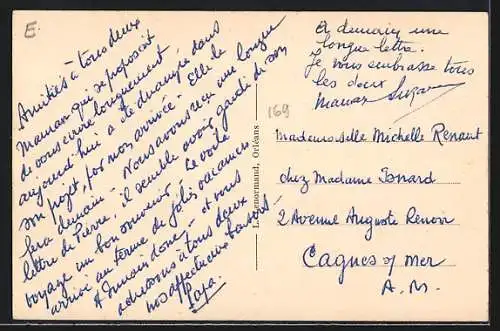 E
Amitiés à tous deux
Maman qui se proposait
de vous écrire longuement
aujourd'hui a été dérangée dans
son projet, par mon arrivée. Elle le
fera demain. Nous avons reçu une longue
lettre de Pierre, il semble avoir gardé de son
voyage un bon souvenir. Le voilà
arrivé au terme de jolies vacances
à demain donc, et nous
adressons à tous deux
nos affectueux baisers
Papa.
A demain une
longue lettre.
Je vous embrasse tous
les deux
Maman Suzanne
169
L. Lenormand, Orléans
Mademoiselle Michelle Renaut
chez Madame Isnard
2 Avenue Auguste Renoir
Cagnes s/ mer
A.M.